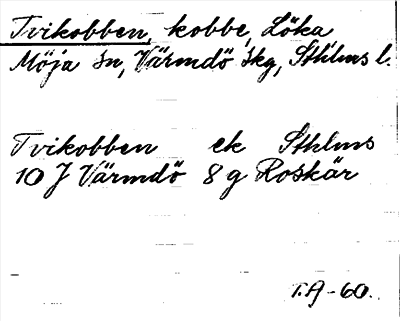 Tvikobben, kobbe, Löka
Möja sn, Värmdö skg, Sthlms l.
Tvikobben ek Sthlms
10 J Värmdö 8 g Roskär
T.A-60.